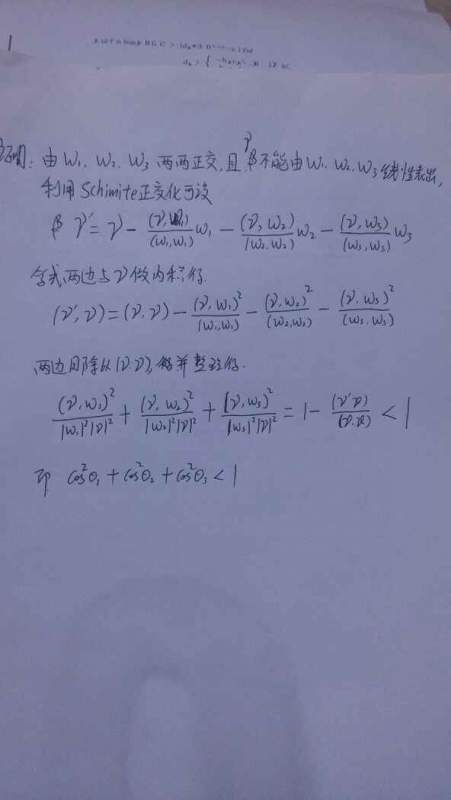 1
证明: 由 W₁、W₂、W₃ 两两正交,且 γ β不能由 W₁、W₂、W₃ 线性表出,
利用 Schimite正交化可设
β γ' = γ - (γ,W₁)/(W₁,W₁) W₁ - (γ,W₂)/(W₂,W₂) W₂ - (γ,W₃)/(W₃,W₃) W₃
令式两边与 γ 做内积得.
(γ',γ) = (γ,γ) - (γ,W₁)²/(W₁,W₁) - (γ,W₂)²/(W₂,W₂) - (γ,W₃)²/(W₃,W₃)
两边同除以 (γ,γ), 得并整理得.
(γ,W₁)²/|W₁|²|γ|² + (γ,W₂)²/|W₂|²|γ|² + (γ,W₃)²/|W₃|²|γ|² = 1 - (γ'γ)/(γ,γ) < 1
即 cos²θ₁ + cos²θ₂ + cos²θ₃ < 1